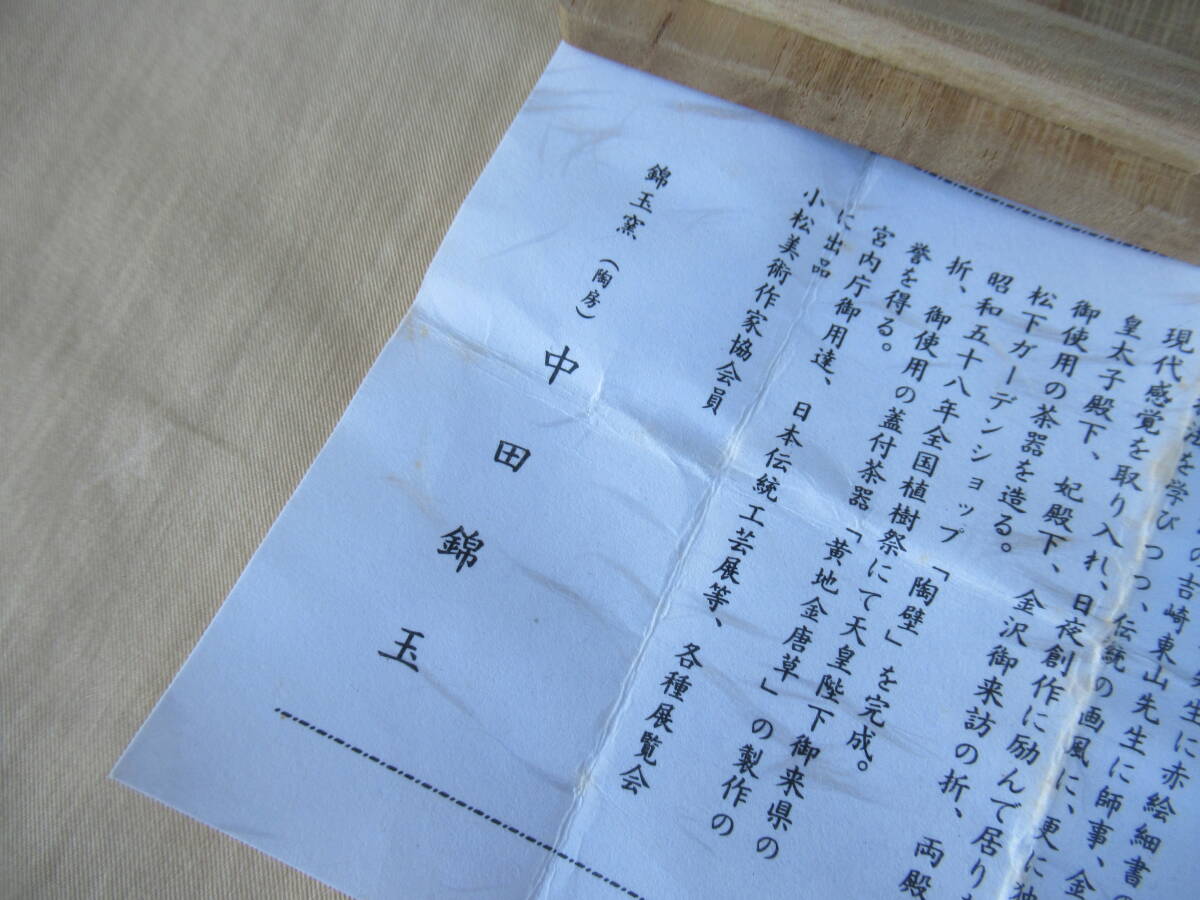 生に赤絵細書の
の吉崎東山先生に師事、金
法を学びつつ、伝統の画風に、更に独
現代感覚を取り入れ、日夜創作に励んで居り
皇太子殿下、妃殿下、金沢御来訪の折、両殿
御使用の茶器を造る。
松下ガーデンショップ「陶壁」を完成。
昭和五十八年全国植樹祭にて天皇陛下御来県の
折、御使用の蓋付茶器「黄地金唐草」の製作の
誉を得る。
宮内庁御用達、日本伝統工芸展等、各種展覧会
に出品
小松美術作家協会員
錦玉窯(陶房)中田錦玉